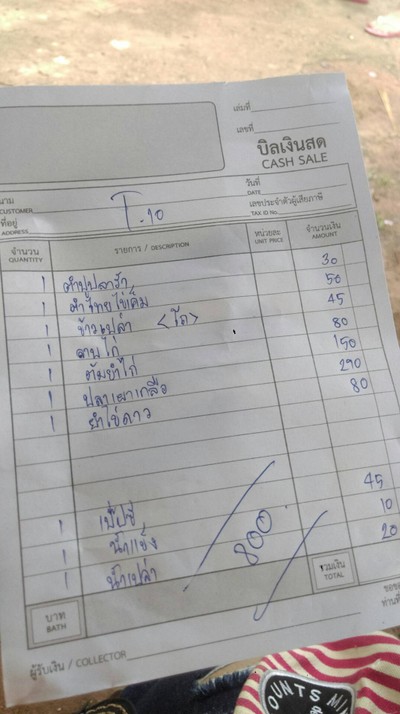 เล่มที่
เลขที่
บิลเงินสด
CASH SALE
นาม
CUSTOMER
วันที่
DATE
ที่อยู่
ADDRESS
T.10
เลขประจำตัวผู้เสียภาษี
TAX ID No.
จำนวน
QUANTITY
รายการ / DESCRIPTION
หน่วยละ
UNIT PRICE
จำนวนเงิน
AMOUNT
1 ตำปูปลาร้า 30
1 ตำไทยไข่เค็ม 50
1 ข้าวเปล่า <โถ> 45
1 ลาบไก่ 80
1 ต้มยำไก่ 150
1 ปลาเผาเกลือ 290
1 ยำไข่ดาว 80
1 เป๊ปซี่ 45
1 น้ำแข็ง 10
1 น้ำเปล่า 20
800
บาท
BATH
รวมเงิน
TOTAL
ผู้รับเงิน / COLLECTOR
OUNTS MIN